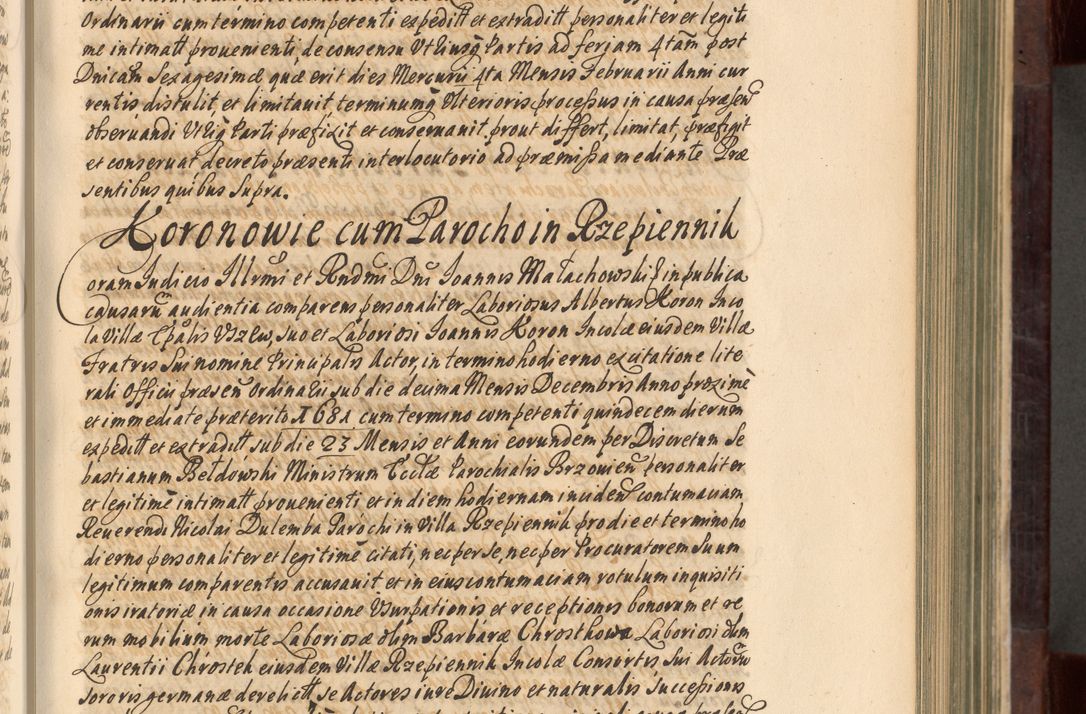 Ordinarii cum termino competenti expeditt et extraditt personaliter et legiti
me intimatt prouenienti, de consensu Vtriusq Partis ad feriam 4tam post
Dnicam Sexagesimæ quæ erit dies Mercurii 4ta Mensis Februarii Anni cur
rentis distulit, et limitauit terminumq Vlterioris processus in causa præsen
obseruandi Vtriq Parti præfixit et conseruauit, prout differt, limitat, præfigit
et conseruat decreto præsenti interlocutorio ad præmissa mediante Præ
sentibus quibus supra.
Koronowie cum Parocho in Rzepiennik
Coram Judicio Illrmi et Rndmi Dni Joannis Małachowski E in publica
causaru audientia comparens personaliter Laboriosus Albertus Koron Inco
la Villæ Epalis Vszew, suo et Laboriosi Joannis Koron Incolæ eiusdem Villæ
Fratris Sui nomine Principalis Actor, in termino hodierno ex citatione lite
rali Officii præsen Ordinarii sub die decima Mensis Decembris Anno proximè
et immediate præterito 1681 cum termino competenti quindecem dierum
expeditt et extraditt sub die 23 Mensis et Anni eorundem per Discretum Se
bastianum Bełdowski Ministrum Ecclæ Parochialis Brzovien personaliter
et legitimè intimatt prouenienti et in diem hodiernam inciden contumaciam
Reuerendi Nicolai Dulemba Parochi in Villa Rzepiennik pro die et termino ho
dierno personaliter et legitimè citati, nec per se, nec per Procuratorem Suum
legitimum comparentis accusauit et in eius contumaciam rotulum inquisiti
onis iuratoriæ in causa occasione Vsurpationis et receptionis bonorum et re
rum mobilium morte Laboriosæ olim Barbaræ Chrostkowa Laboriosi olim
Laurentii Chrostek eiusdem Villæ Rzepiennik Incolæ Consortis Sui Actoru
sororis germanæ derelictt se Actores iure Diuino et naturalis successionis